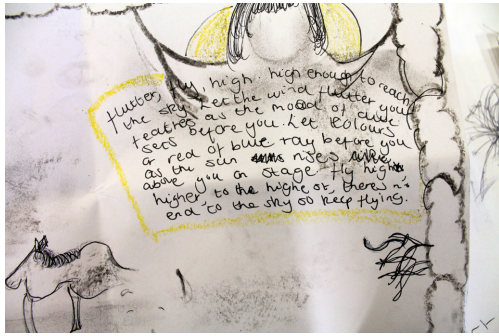 flutter, fly, high. high enough to reach
the sky. Let the wind flutter you
featres as the mood of
sets before you. Let colours
or red of blue ray before you
as the sun rises
above you on stage fly high
higher, to the highe or, theres n
end to the sky so keep flying.